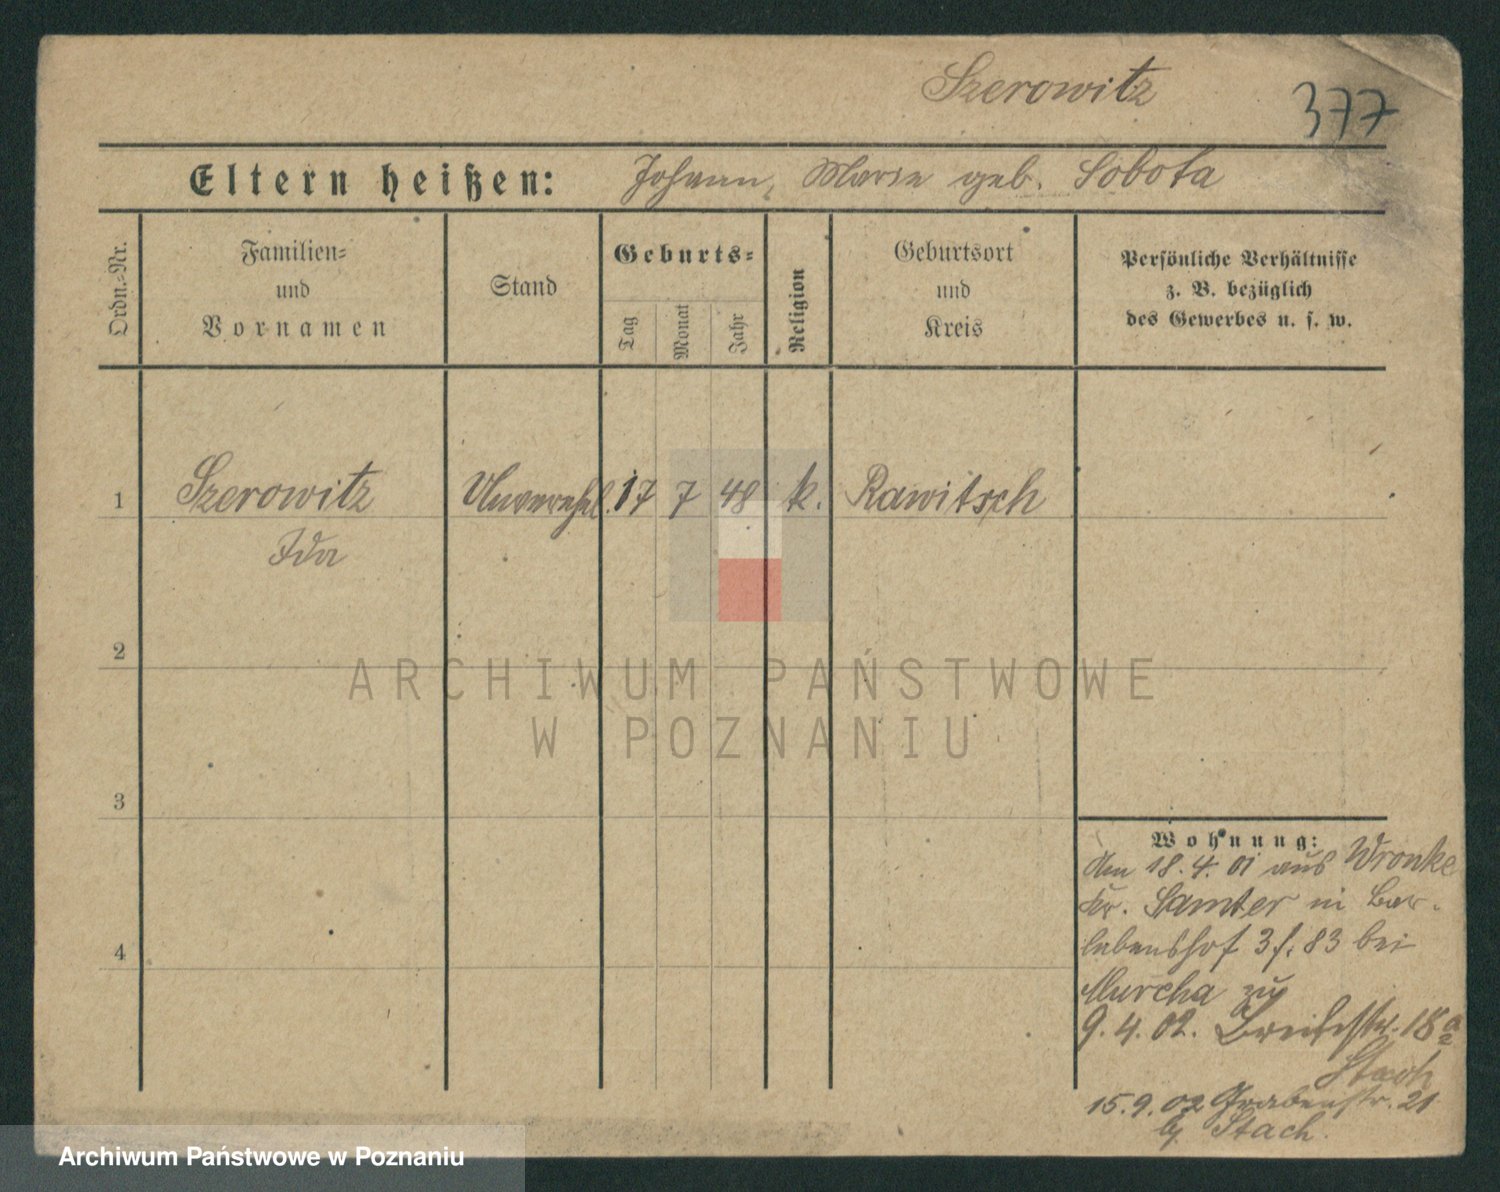 Szerowitz
377
Eltern heißen: Johann, Marie geb. Sobota
Ordn.-Nr.
Familien-
und
Vornamen
Stand
Geburts-
Tag
Monat
Jahr
Religion
Geburtsort
und
Kreis
Persönliche Verhältnisse
z. B. bezüglich
des Gewerbes u. s. w.
1 Szerowitz Unverehel. 17 7 48 k. Rawitsch
Ida
2
3
4
Wohnung:
Am 18.4.01 aus Wronke
Kr. Samter in Bar-
lebenshof 83 bei
Murcha zu
9.4.02. Breitestr. 18a
Stach
15.9.02 Grabenstr. 21
b/ Stach.
ARCHIWUM PAŃSTWOWE
W POZNANIU
Archiwum Państwowe w Poznaniu